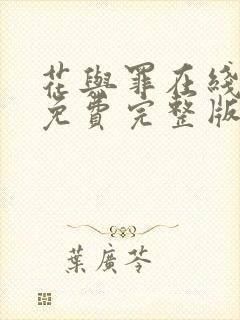 花與罪在綫
免費完整版
葉廣芩